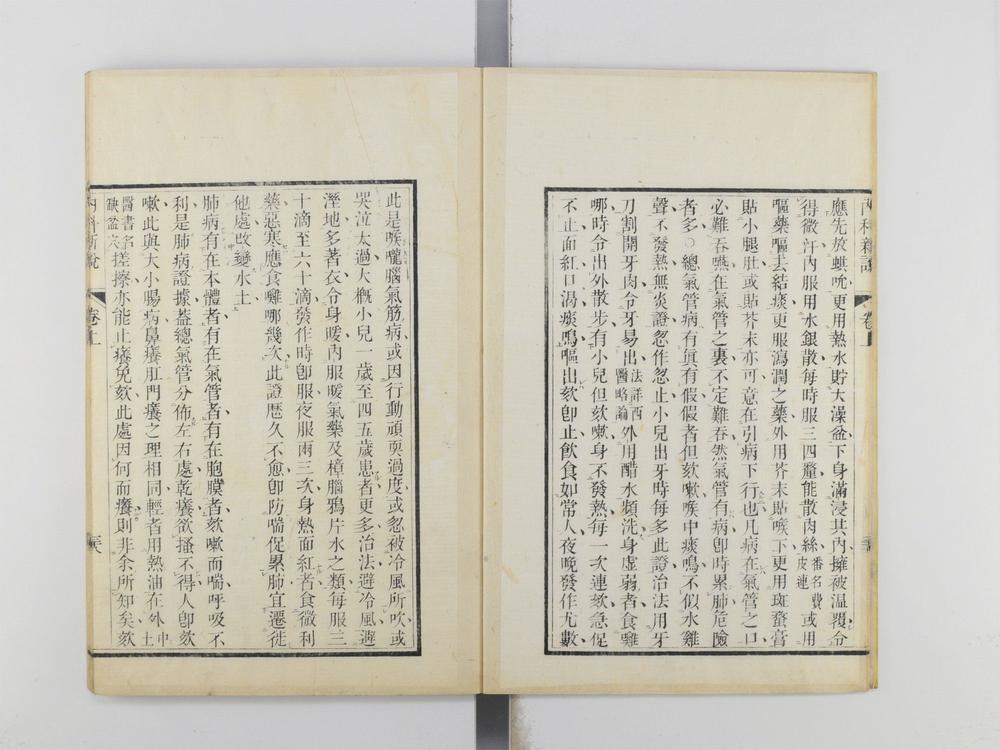 內科新說
卷上
應先放蜞吮更用熱水貯大澡盆下身滿浸其內擁被溫覆令
得微汗內服用水銀散每時服三四釐能散肉絲番名費皮連或用
嘔藥嘔去結痰更服瀉潤之藥外用芥末貼喉下更用斑蝥膏
貼小腿肚或貼芥末亦可意在引病下行也凡病在氣管之口
必難吞嚥在氣管之裏不定難吞然氣管有病卽時累肺危險
者多○總氣管病有眞有假假者但欬嗽喉中痰鳴不似水雞
聲不發熱無炎證忽作忽止小兒出牙時每多此證治法用牙
刀割開牙肉令牙易出法詳西醫略論外用醋水頻洗身虛弱者食雞
哪時令出外散步有小兒但欬嗽身不發熱每一次連欬急促
不止面紅口渴痰鳴嘔出欬卽止飲食如常人夜晚發作尤數
此是喉嚨腦氣筋病或因行動頑耍過度或忽被冷風所吹或
哭泣太過大槪小兒一歲至四五歲患者更多治法避冷風避
溼地多著衣令身暖內服暖氣藥及樟腦鴉片水之類每服三
十滴至六十滴發作時卽服夜服兩三次身熱面紅者食微利
藥惡寒應食雞哪幾次此證歷久不愈卽防喘促累肺宜遷徙
他處改變水土
肺病有在本體者有在氣管者有在胞膜者欬嗽而喘呼吸不
利是肺病證據蓋總氣管分佈左右處乾癢欲搔不得人卽欬
嗽此與大小腸病鼻癢肛門癢之理相同輕者用熱油在外中土
醫書名缺盆穴搓擦亦能止癢免欬此處因何而癢則非余所知矣欬
內科新說
卷上
三六